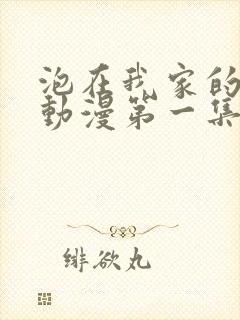 泡在我家的
動漫第一集
緋欲丸